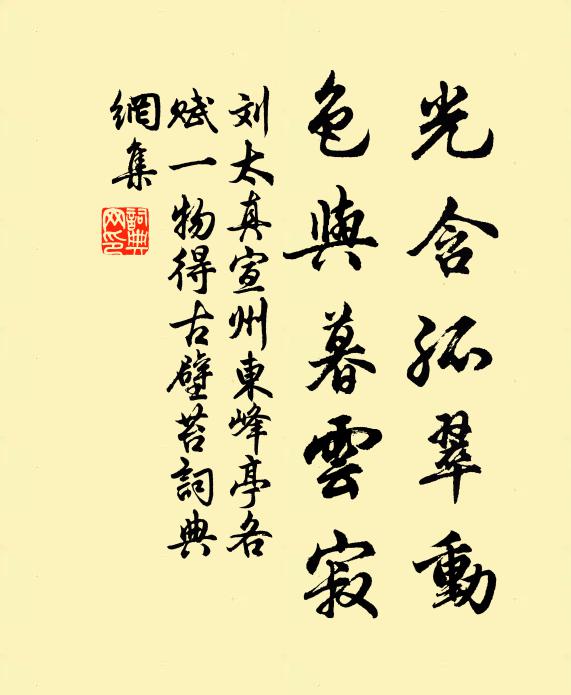 光含孤翠動
色與暮雲寂
刘太真宣州東峰亭各
赋一物得古壁苔詞典
網集
詞典
网印